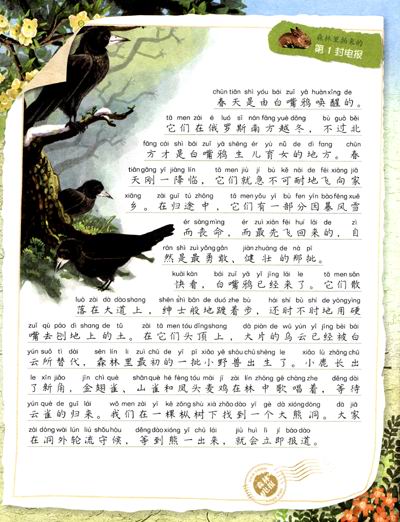 森林里拍来的
第1封电报
chūn tiān shì yóu bái zuǐ yā huàn xǐng de
春天是由白嘴鸦唤醒的。
tā men zài é luó sī nán fāng yuè dōng bú guò běi
它们在俄罗斯南方越冬，不过北
fāng cái shì bái zuǐ yā shēng ér yù nǚ de dì fang chūn
方才是白嘴鸦生儿育女的地方。春
tiān gāng yī jiàng lín tā men jiù jí bù kě nài de fēi xiàng jiā
天刚一降临，它们就急不可耐地飞向家
xiāng zài guī tú zhōng tā men yǒu yí bù fen yīn bào fēng xuě
乡。在归途中，它们有一部分因暴风雪
ér sàng mìng ér zuì xiān fēi huí lái de zì
而丧命，而最先飞回来的，自
rán shì zuì yǒng gǎn jiàn zhuàng de nà pī
然是最勇敢、健壮的那批。
kuài kàn bái zuǐ yā yǐ jīng lái le tā men sàn
快看，白嘴鸦已经来了。它们散
luò zài dà dào shang shēn shì bān de duó zhe bù hái shí bù shí de yòng yìng
落在大道上，绅士般地踱着步，还时不时地用硬
zuǐ qù páo dì shang de tǔ zài tā men tóu dǐng shang dà piàn de wū yún yǐ jīng bèi bái
嘴去刨地上的土。在它们头顶上，大片的乌云已经被白
yún suǒ tì dài sēn lín lǐ zuì chū de yì pī xiǎo yě shòu chū shēng le xiǎo lù zhǎng chū
云所替代，森林里最初的一批小野兽出生了。小鹿长出
le xīn jiǎo jīn chì què shān què hé fèng tóu mài jī zài lín zhōng gē chàng zhe děng dài
了新角，金翅雀、山雀和凤头麦鸡在林中歌唱着，等待
yún què de guī lái wǒ men zài yì kē zōng shù xià zhǎo dào yí gè dà xióng dòng dà jiā
云雀的归来。我们在一棵枞树下找到一个大熊洞。大家
zài dòng wài lún liú shǒu hòu děng dào xióng yì chū lái jiù huì lì jí bào dào
在洞外轮流守候，等到熊一出来，就会立即报道。